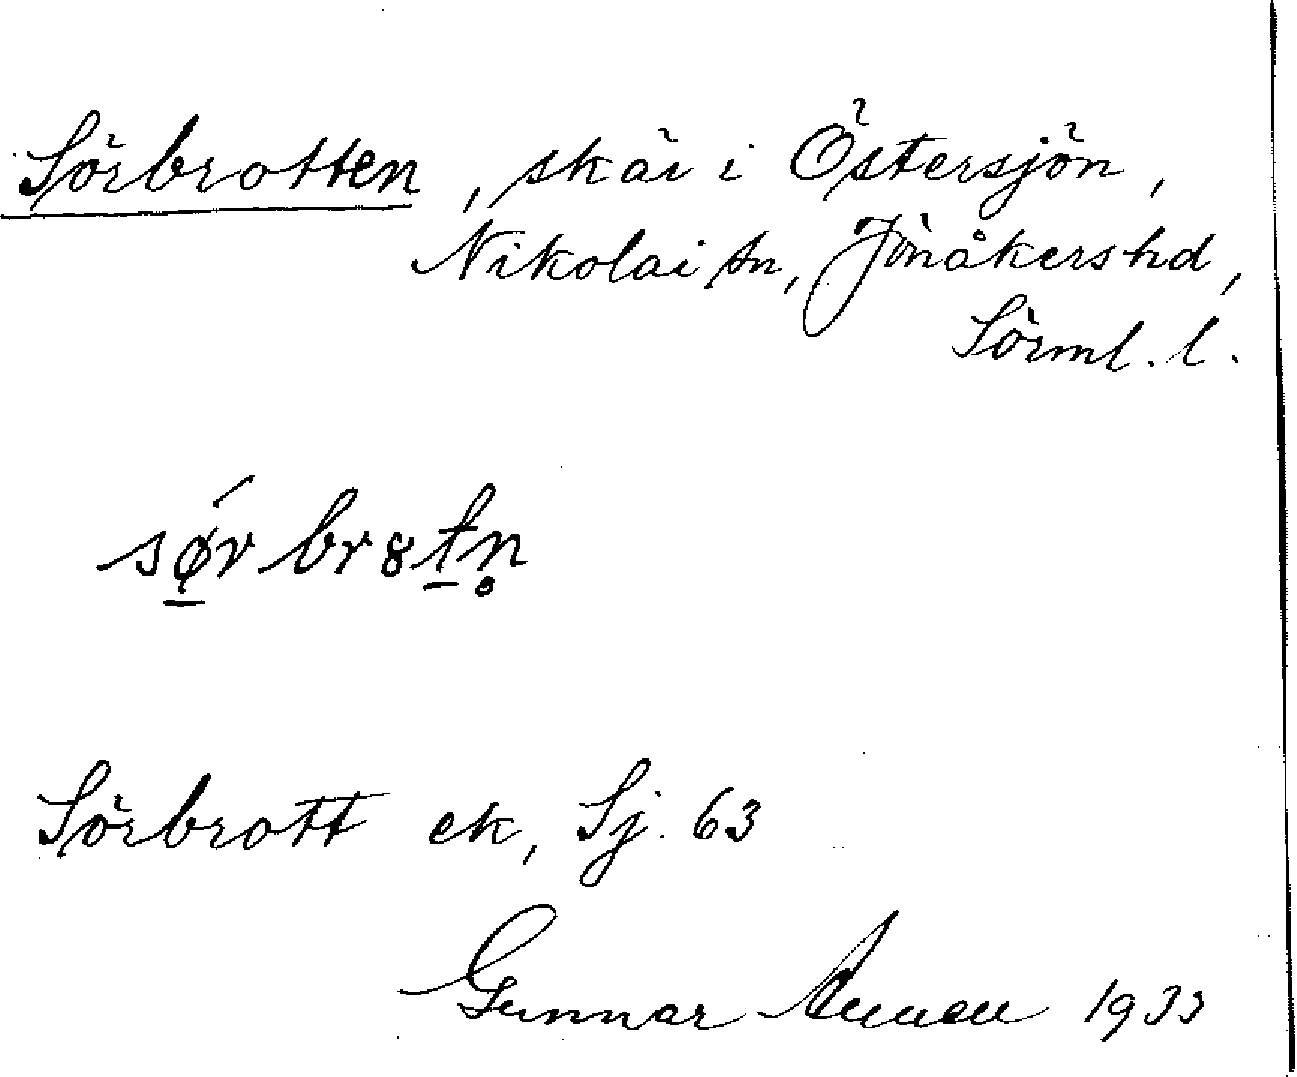 Sörbrotten, skär i Östersjön,
Nikolai sn, Jönåkers hd,
Sörml. l.
sǿ̱r br8ṯn̥
Sörbrott ek, Sj. 63
Gunnar 1933